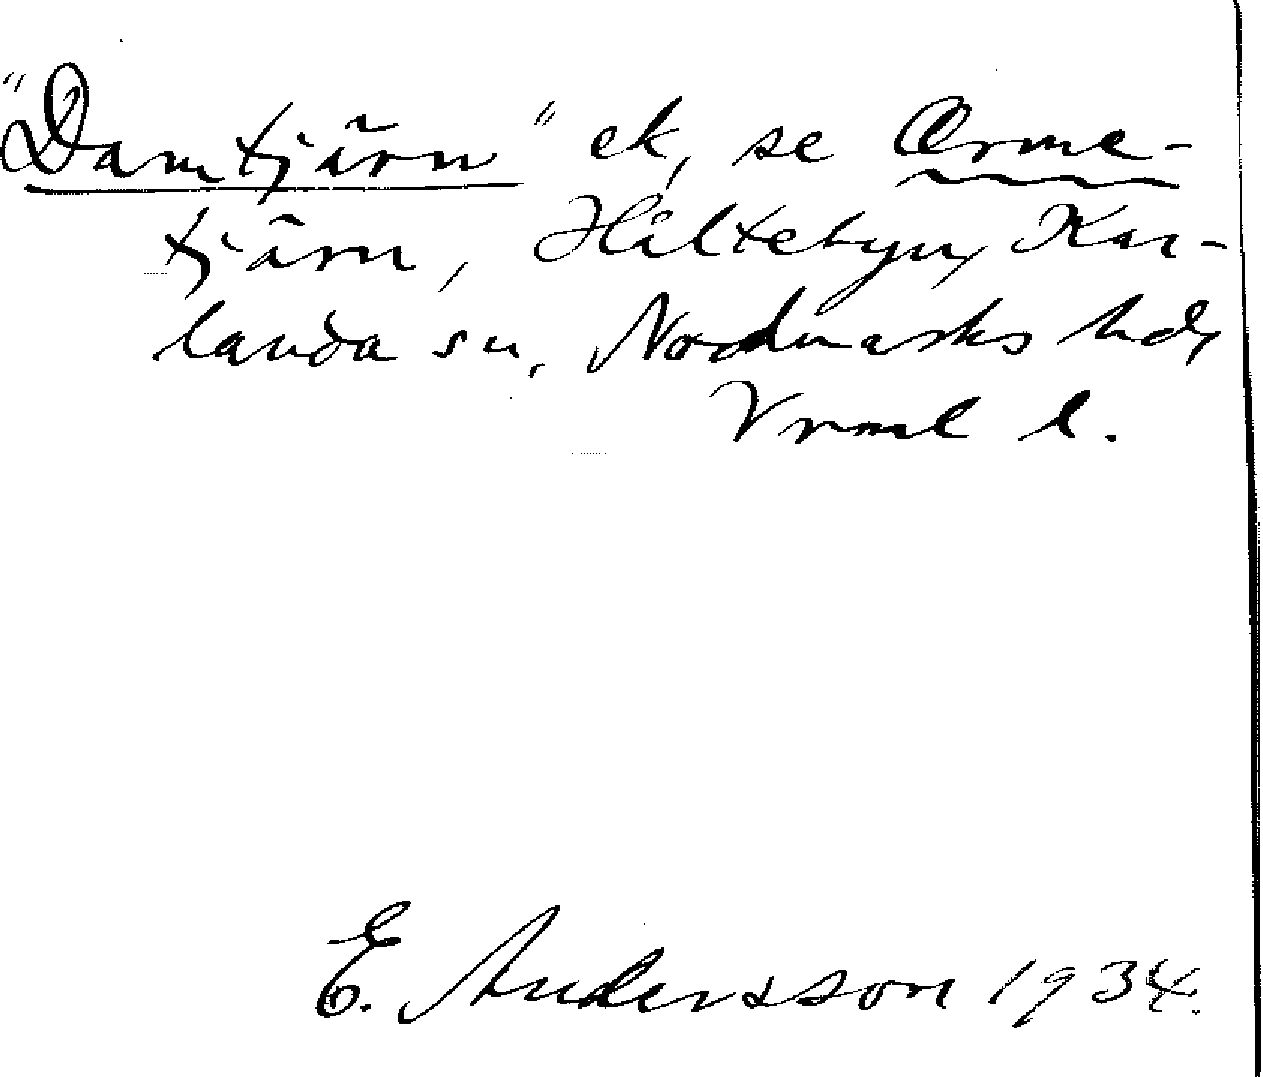 "Damtjärn" ek, se Ørme-
tjärn, Håltebyn, Kar-
landa sn, Nordmarks hd,
Vrml l.
E. Andersson 1934.